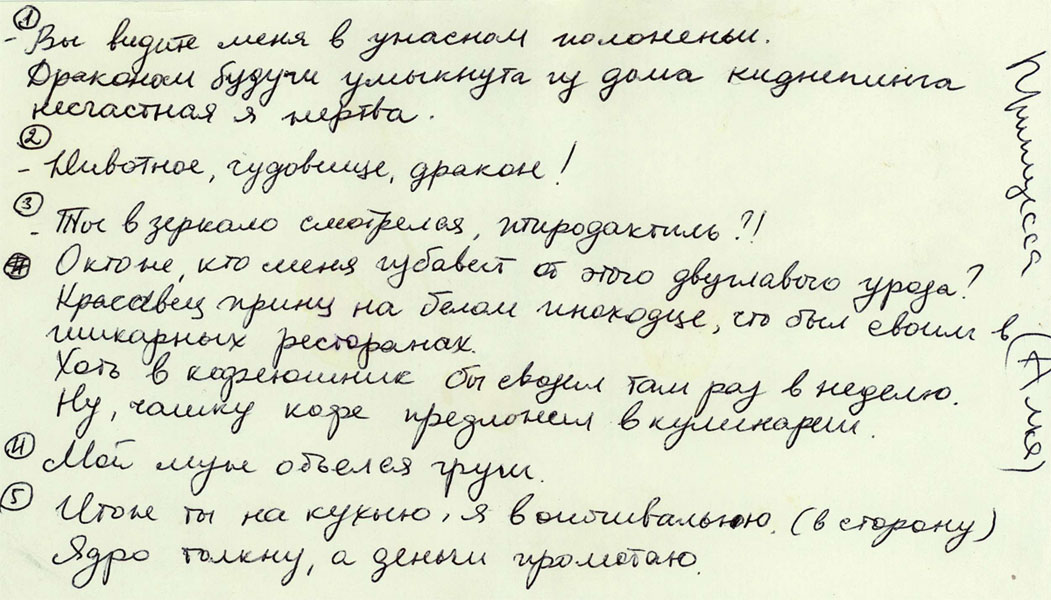 ①
- Вы видите меня в ужасном положеньи.
Драконом будучи умыкнута из дома киднепинга
несчастная я жертва.
②
- Животное, чудовище, дракон!
③
- Ты в зеркало смотрелся, птиродактиль?!
О кто же, кто меня избавит от этого двуглавого урода?
Красавец принц на белом иноходце, что был своим в
шикарных ресторанах.
Хоть в кофеюшник бы сводил там раз в неделю.
Ну, чашку кофе предложил в кулинарии.
④ Мой муж объелся груш.
⑤
Итоже ты на кухню, я в опочивальню. (в сторону)
Ядро толкну, а деньги промотаю.
Принцесса (Алке)